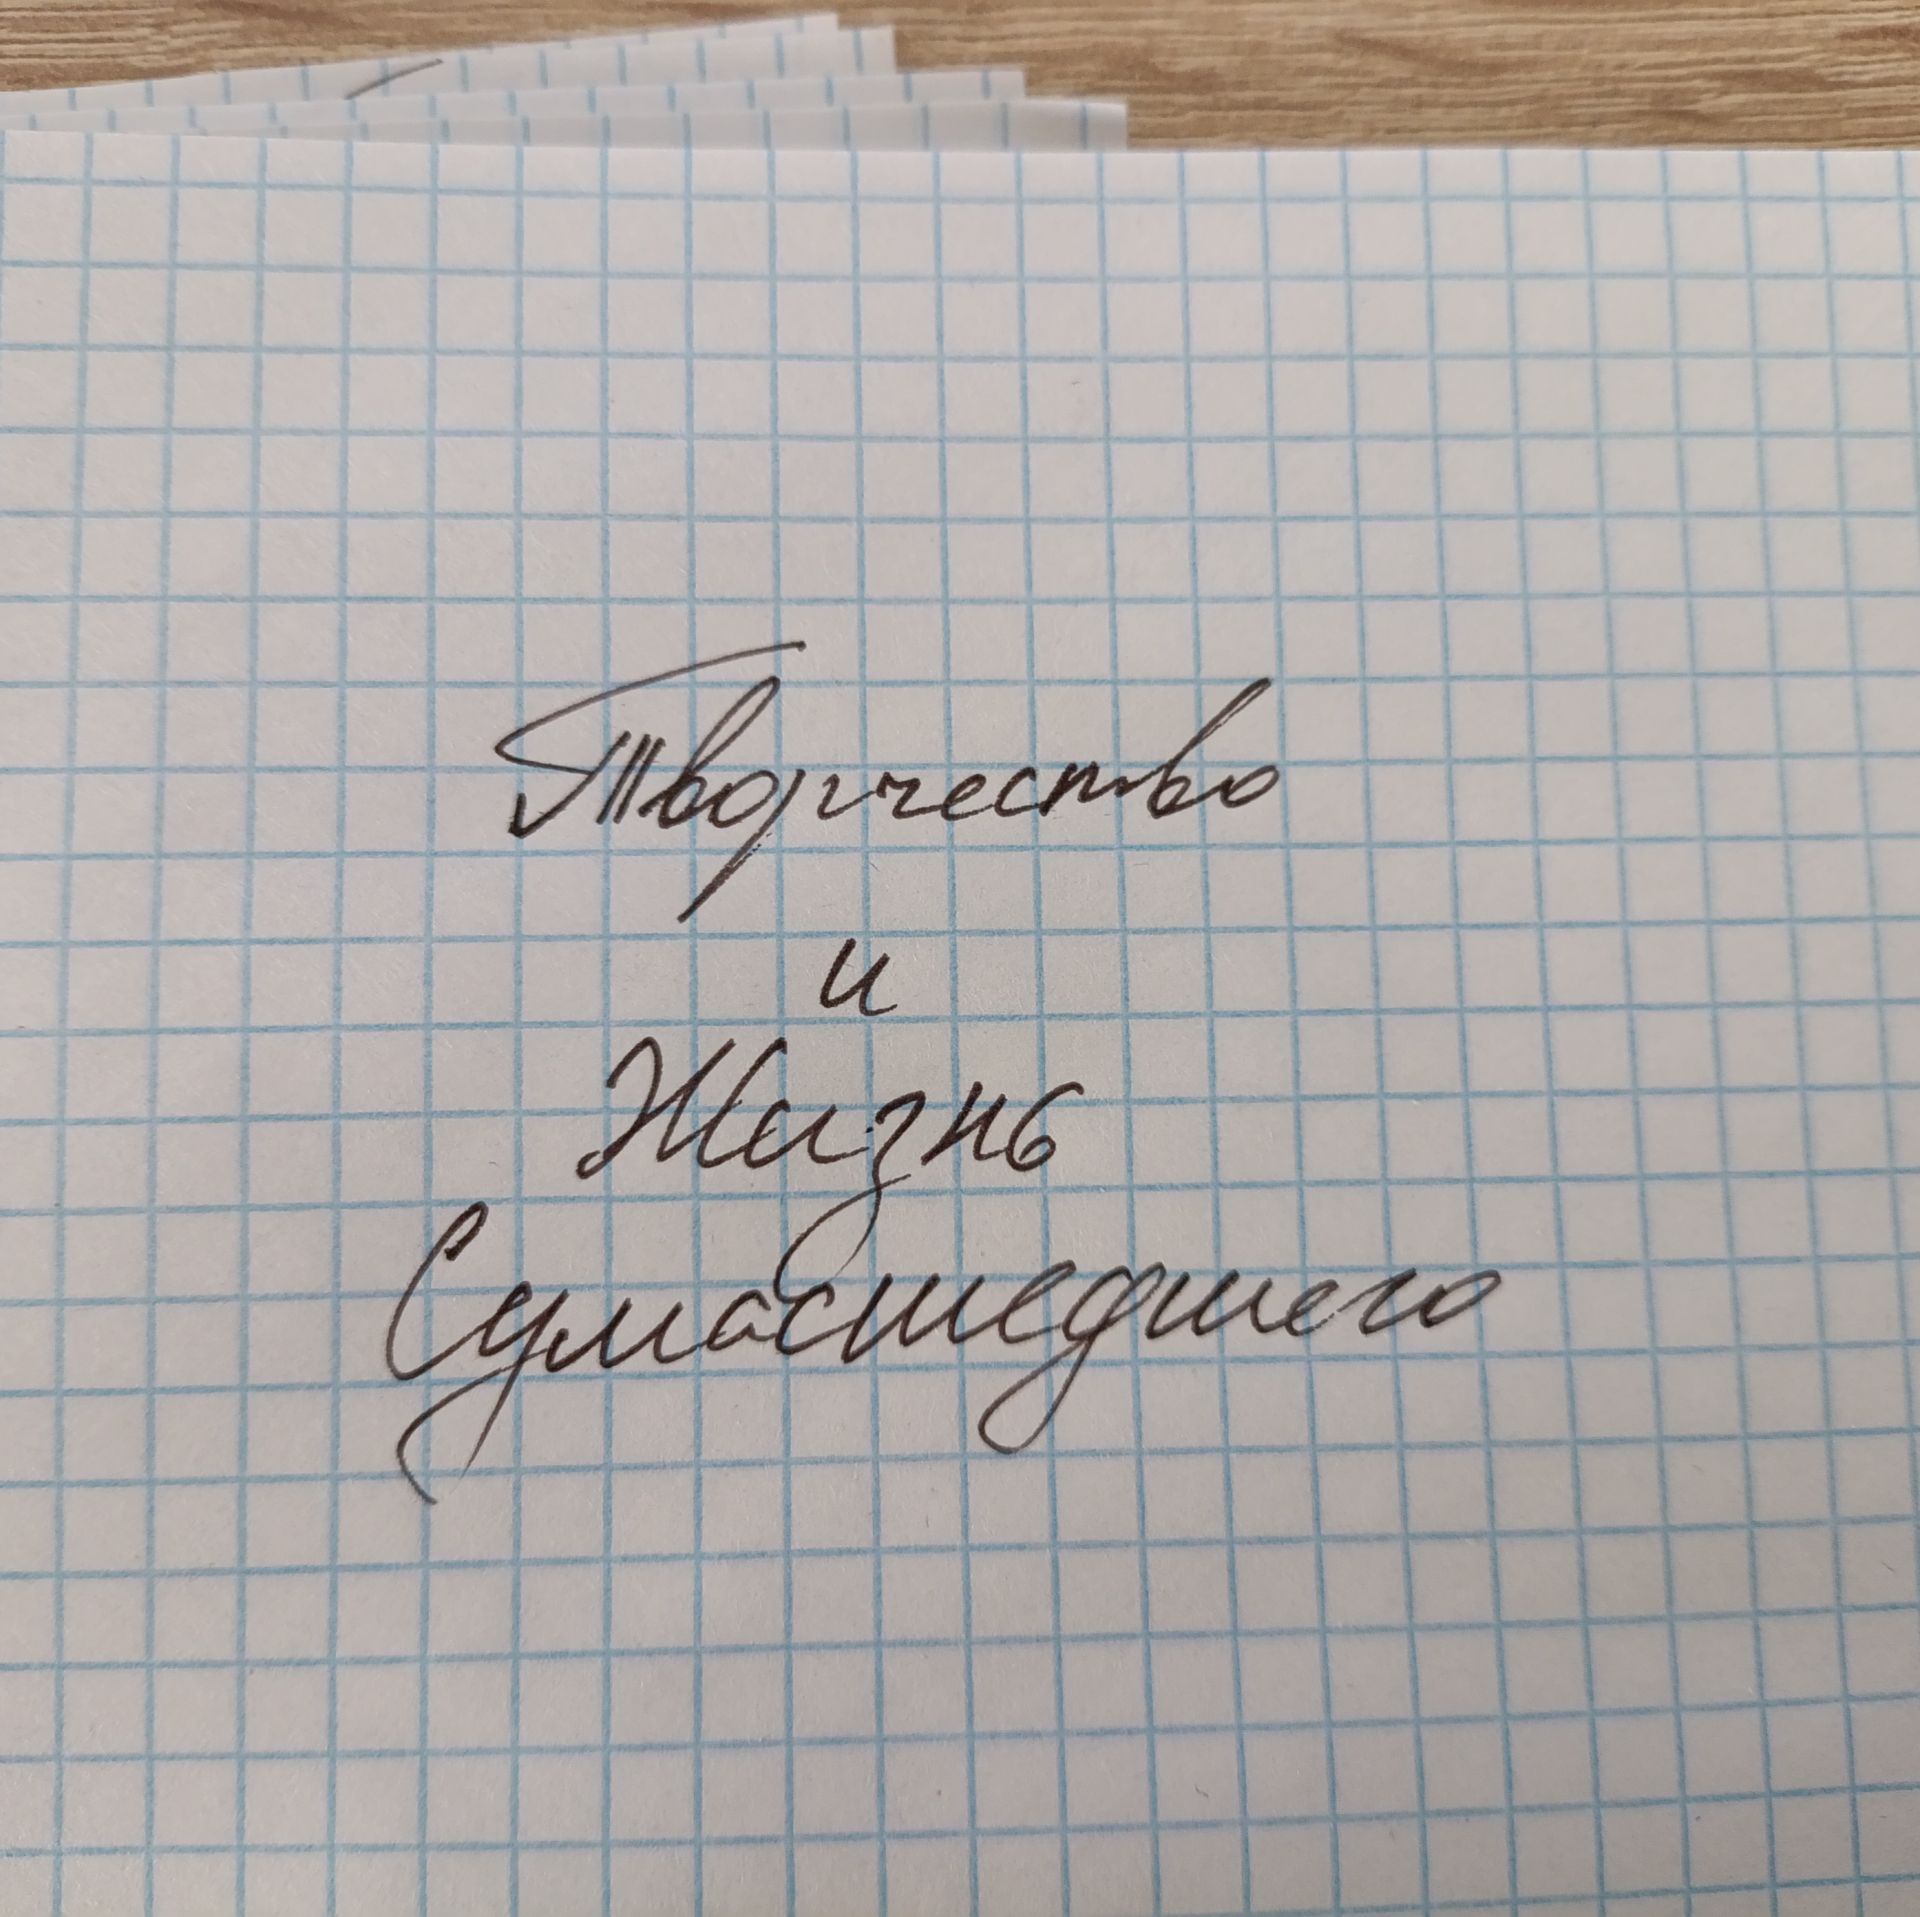 Творчество
и
Жизнь
Сумасшедшего